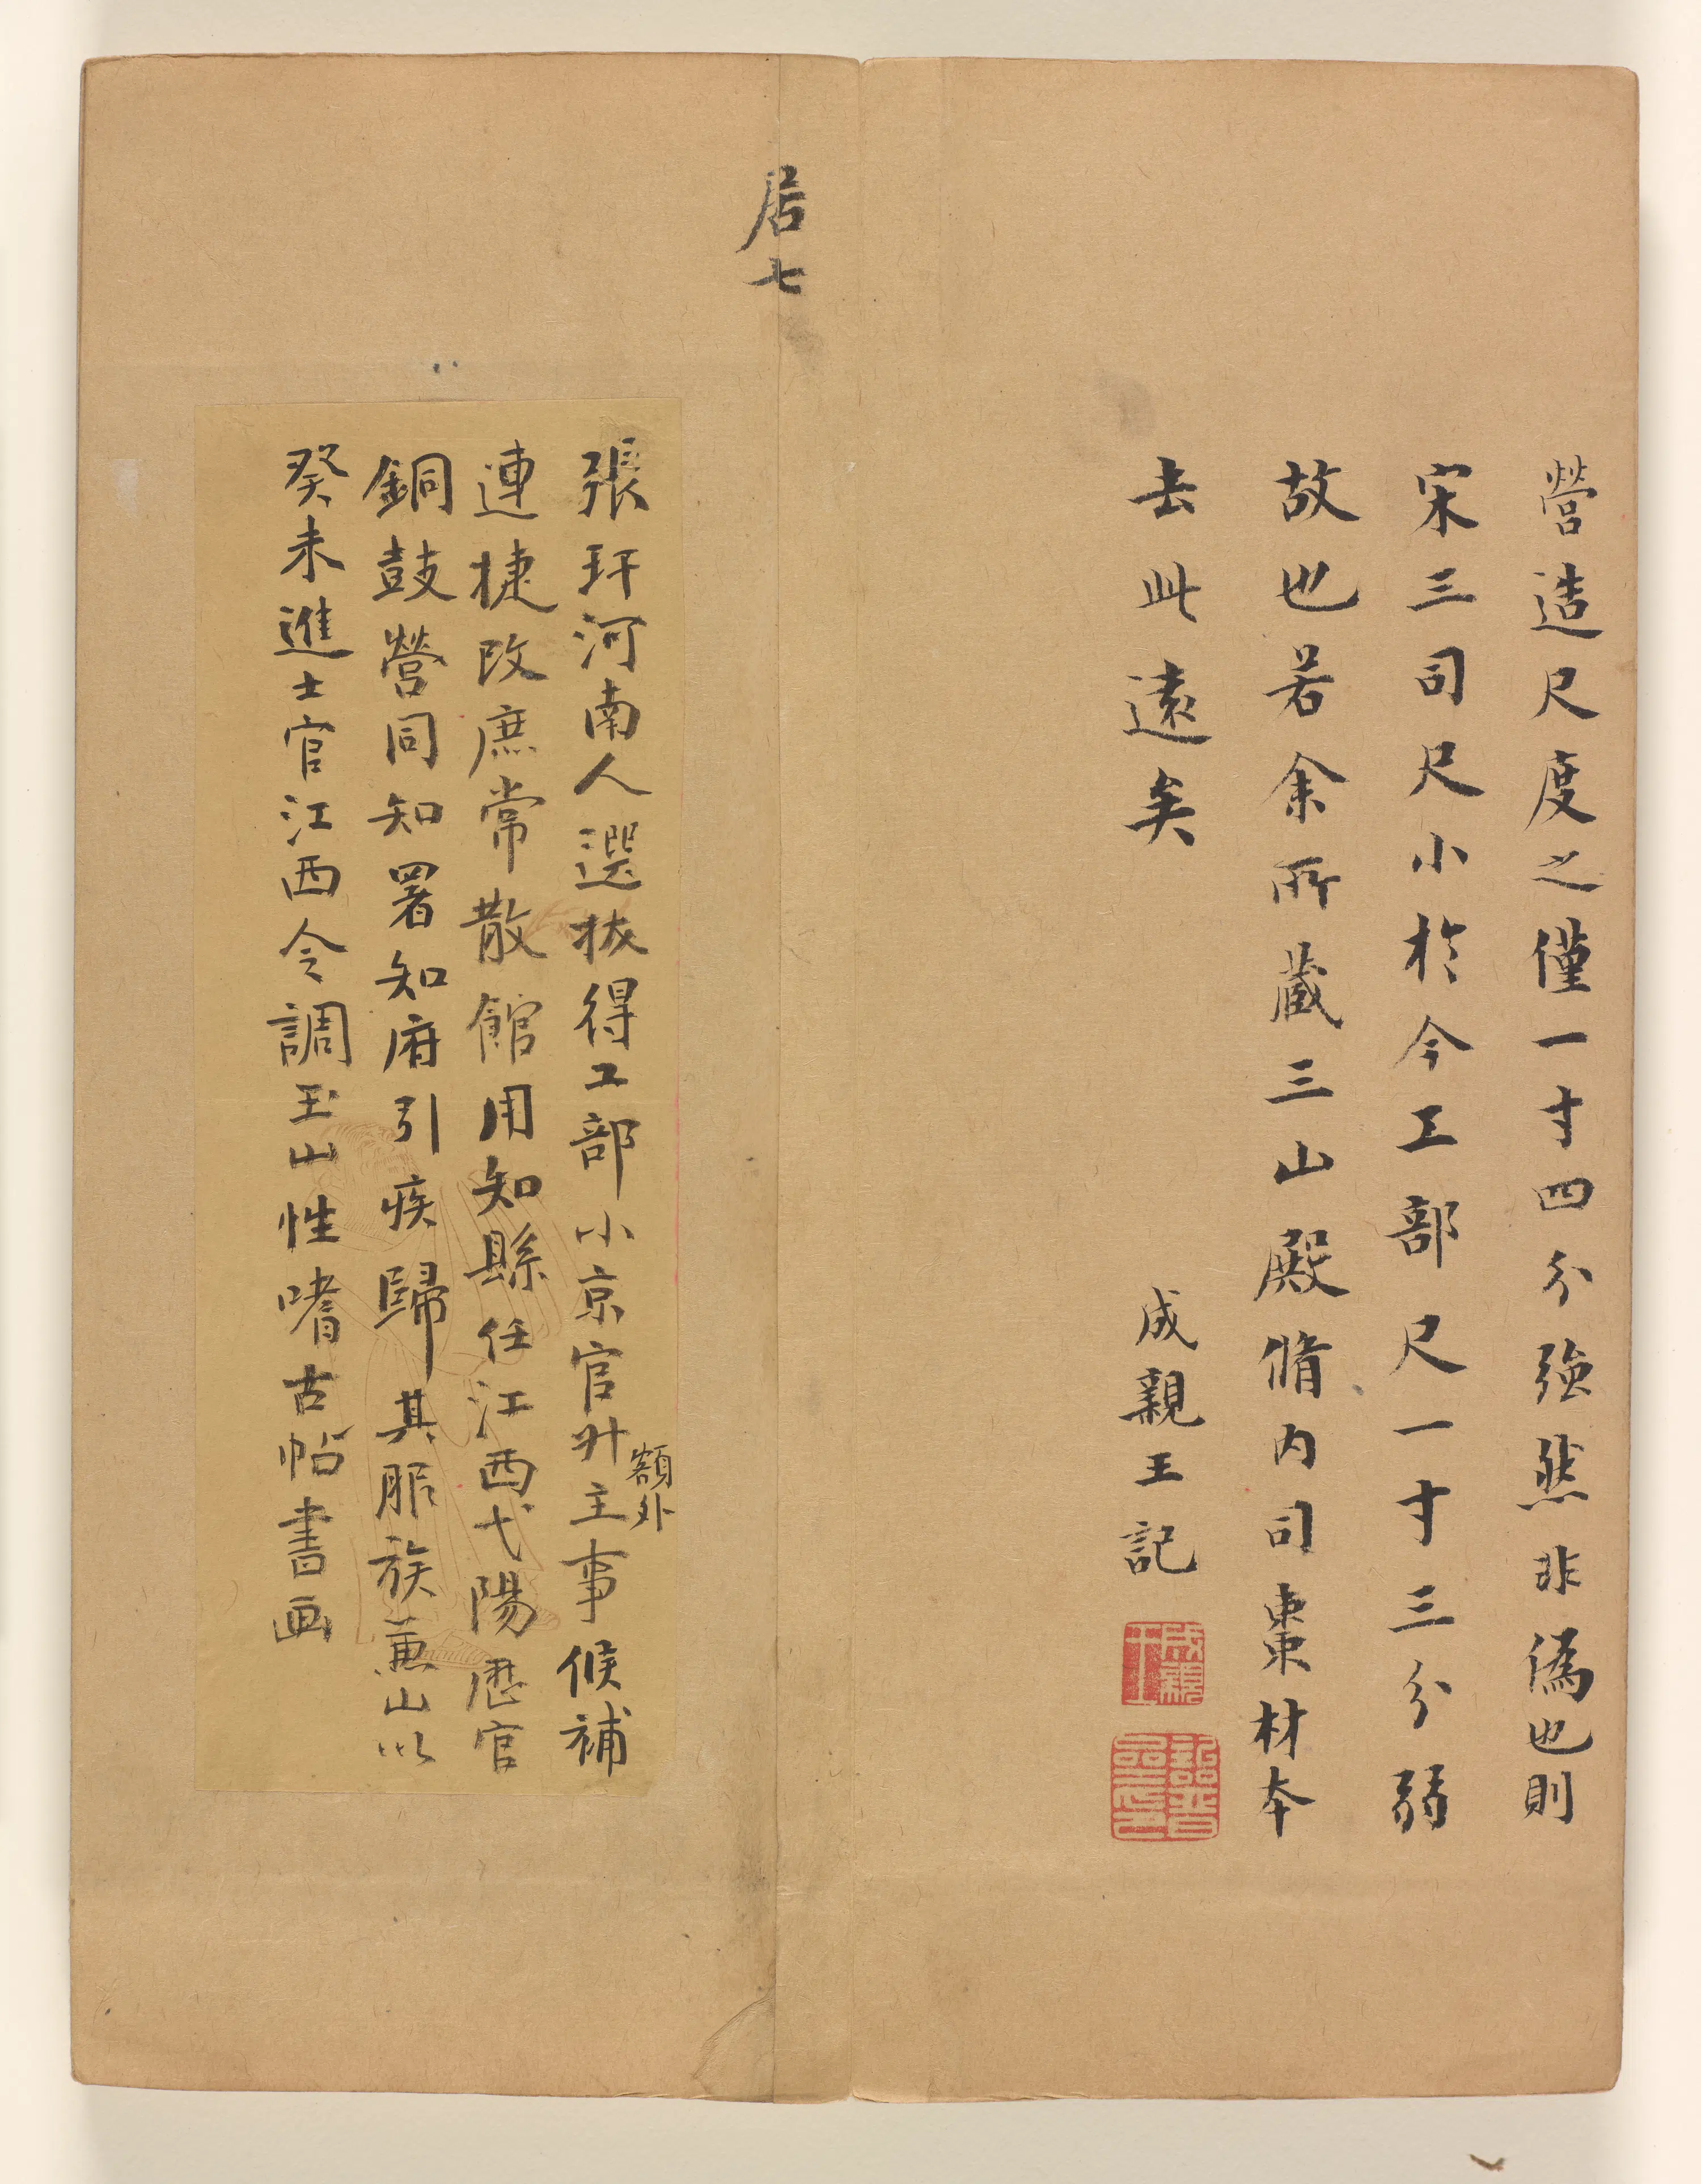 營造尺度之僅一寸四分強然非偽也則
宋三司尺小於今工部尺一寸三分弱
故也若余所藏三山殿脩內司棗材本
去此遠矣
成親王記
成親王
詒晉齋印
居七
張玕河南人選拔得工部小京官升主事候補
額外
連捷改庶常散館用知縣任江西弋陽歷官
銅鼓營同知署知府引疾歸其服族蕙山以
癸未進士官江西令調玉山性嗜古帖書画